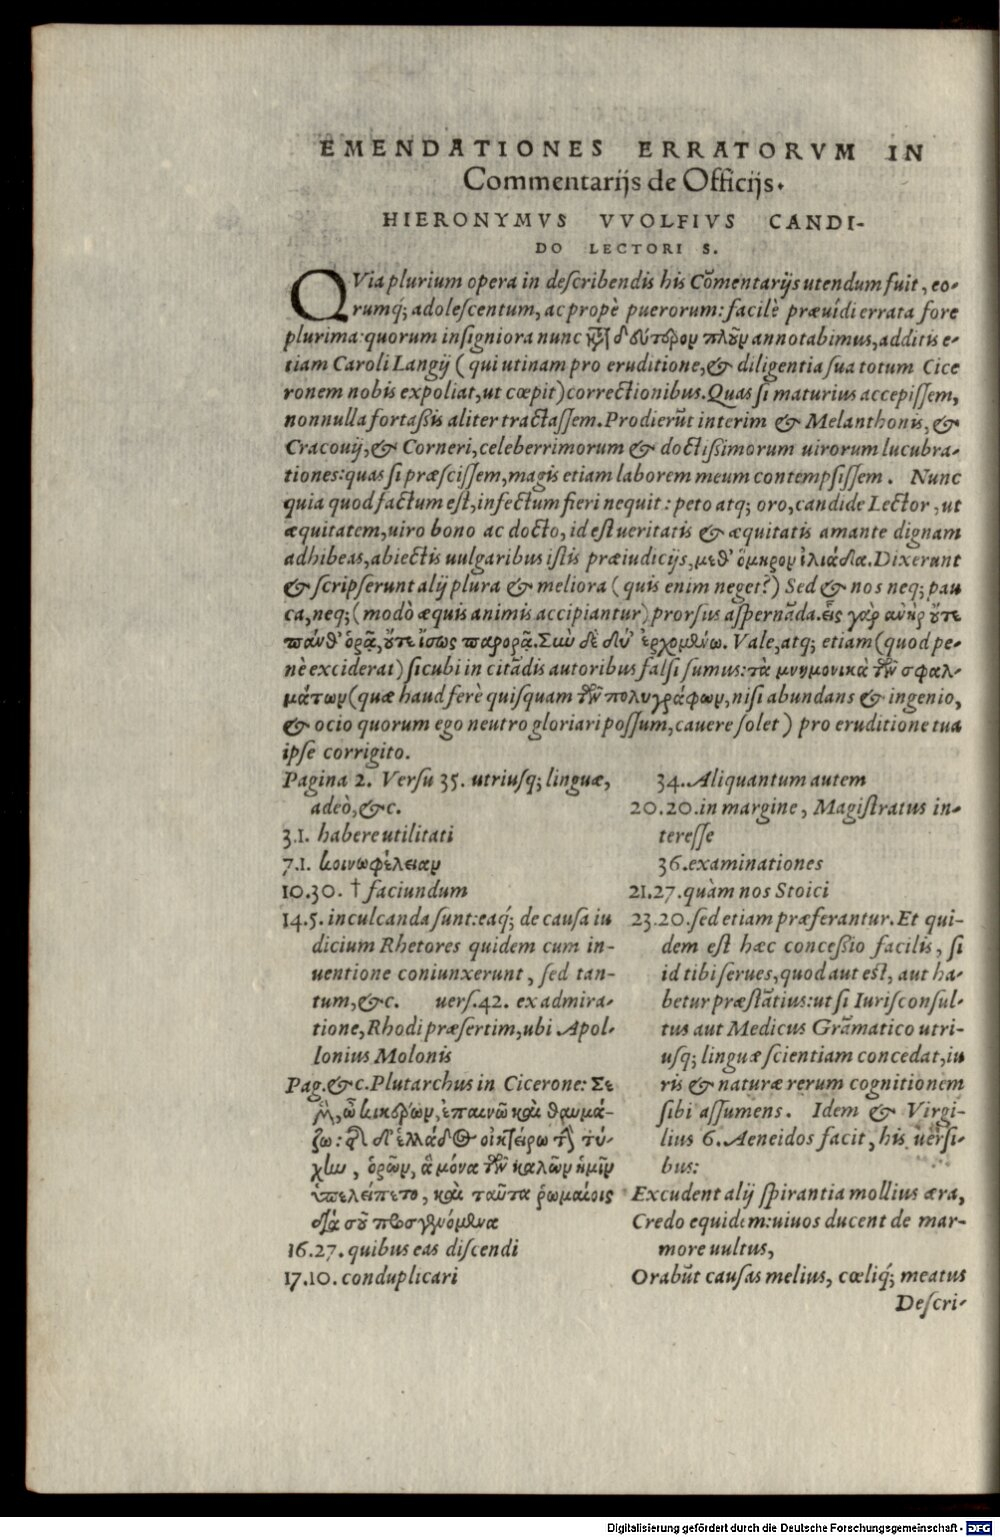 EMENDATIONES ERRATORVM IN
Commentarijs de Officijs.
HIERONYMVS VVOLFIVS CANDI-
DO LECTORI S.
QVia plurium opera in describendis his Cōmentarijs utendum fuit, eo-
rumq́; adolescentum, ac propè puerorum: facilè præuidi errata fore
plurima: quorum insigniora nunc κατὰ δεύτερον πλοῦν annotabimus, additis e-
tiam Caroli Langij (qui utinam pro eruditione, & diligentia sua totum Cice
ronem nobis expoliat, ut cœpit) correctionibus. Quas si maturius accepissem,
nonnulla fortaßis aliter tractassem. Prodierūt interim & Melanthonis, &
Cracouij, & Corneri, celeberrimorum & doctißimorum uirorum lucubra-
tiones: quas si præscissem, magis etiam laborem meum contempsissem. Nunc
quia quod factum est, infectum fieri nequit: peto atq; oro, candide Lector, ut
æquitatem, uiro bono ac docto, id est ueritatis & æquitatis amante dignam
adhibeas, abiectis uulgaribus istis præiudicijs, μεθ' ὅμηρον ἰλιάδα. Dixerunt
& scripserunt alij plura & meliora (quis enim neget?) Sed & nos neq; pau
ca, neq; (modò æquis animis accipiantur) prorsus aspernāda. εἷς γὰρ ἀνὴρ οὔτε
πάνθ' ὁρᾷ, οὔτε ἴσως παρορᾷ. Σὺν δὲ δύ' ἐρχομένω. Vale, atq; etiam (quod pe-
nè exciderat) sicubi in citādis autoribus falsi sumus: τὰ μνημονικὰ τῶν σφαλ-
μάτων (quæ haud ferè quisquam τῶν πολυγράφων, nisi abundans & ingenio,
& ocio quorum ego neutro gloriari possum, cauere solet) pro eruditione tua
ipse corrigito.
Pagina 2. Versu 35. utriusq; linguæ,
adeò, &c.
3.1. habere utilitati
7.1. κοινωφέλειαν
10.30. † faciundum
14.5. inculcanda sunt: eaq́; de causa iu
dicium Rhetores quidem cum in-
uentione coniunxerunt, sed tan-
tum, &c. uers. 42. ex admira-
tione, Rhodi præsertim, ubi Apol-
lonius Molonis
Pag. &c. Plutarchus in Cicerone: Σὲ
μὲν, ὦ κικέρων, ἐπαινῶ καὶ θαυμά-
ζω: τῆς δὲ ἑλλάδος οἰκτείρω τὴν τύ-
χην, ὁρῶν, ἃ μόνα τῶν καλῶν ἡμῖν
ὑπελείπετο, καὶ ταῦτα ῥωμαίοις
διὰ σοῦ προσγενόμενα
16.27. quibus eas discendi
17.10. conduplicari
34. Aliquantum autem
20.20. in margine, Magistratus in-
teresse
36. examinationes
21.27. quàm nos Stoici
23.20. sed etiam præferantur. Et qui-
dem est hæc conceßio facilis, si
id tibi serues, quod aut est, aut ha-
betur præstātius: ut si Iurisconsul-
tus aut Medicus Grāmatico utri-
usq; linguæ scientiam concedat, iu
ris & naturæ rerum cognitionem
sibi assumens. Idem & Virgi-
lius 6. Aeneidos facit, his uersi-
bus:
Excudent alij spirantia mollius æra,
Credo equidem: uiuos ducent de mar-
more uultus,
Orabūt causas melius, cœliq́; meatus
Descri-
Digitalisierung gefördert durch die Deutsche Forschungsgemeinschaft - DFG